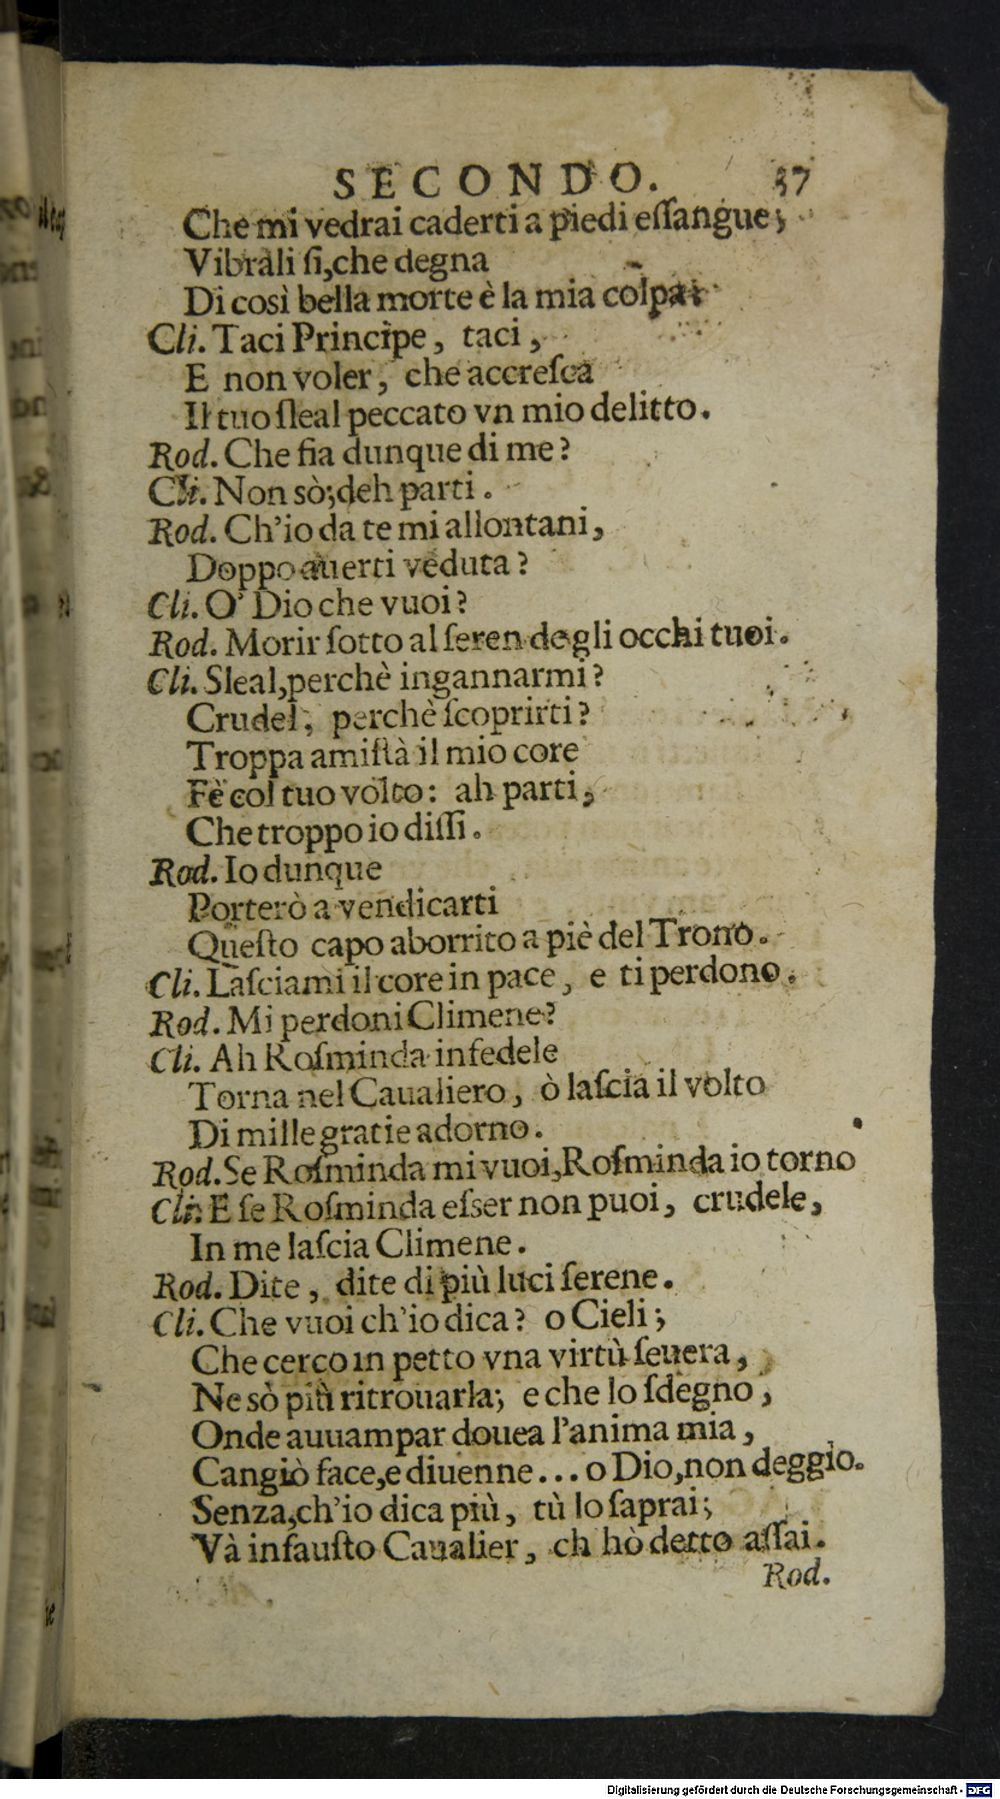 SECONDO. 37
Che mi vedrai caderti a piedi eſſangue;
Vibrali ſi,che degna
Di così bella morte è la mia colpa:
Cli. Taci Principe, taci,
E non voler, che accreſca
Il tuo ſleal peccato vn mio delitto.
Rod. Che fia dunque di me?
Cli. Non sò;deh parti.
Rod. Ch'io da te mi allontani,
Doppo auerti veduta?
Cli. O' Dio che vuoi?
Rod. Morir ſotto al ſeren degli occhi tuoi.
Cli. Sleal,perchè ingannarmi?
Crudel, perchè ſcoprirti?
Troppa amiſtà il mio core
Fè col tuo volto: ah parti,
Che troppo io diſſi.
Rod. Io dunque
Porterò a vendicarti
Queſto capo aborrito a piè del Trono.
Cli. Laſciami il core in pace, e ti perdono.
Rod. Mi perdoni Climene?
Cli. Ah Roſminda infedele
Torna nel Caualiero, ò laſcia il volto
Di mille gratie adorno.
Rod. Se Roſminda mi vuoi,Roſminda io torno
Cli. E ſe Roſminda eſser non puoi, crudele,
In me laſcia Climene.
Rod. Dite, dite di più luci ſerene.
Cli. Che vuoi ch'io dica? o Cieli;
Che cerco in petto vna virtù ſeuera,
Ne sò più ritrouarla; e che lo ſdegno,
Onde auuampar douea l'anima mia,
Cangiò face,e diuenne... o Dio,non deggio.
Senza,ch'io dica più, tù lo ſaprai;
Và infauſto Caualier, ch hò detto aſſai.
Rod.
Digitalisierung gefördert durch die Deutsche Forschungsgemeinschaft - DFG